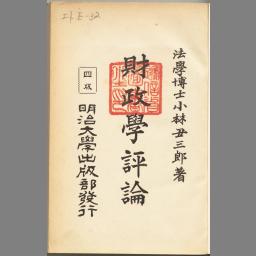 法學博士小林丑三郎著
財政學評論
四版
明治大學出版部發行